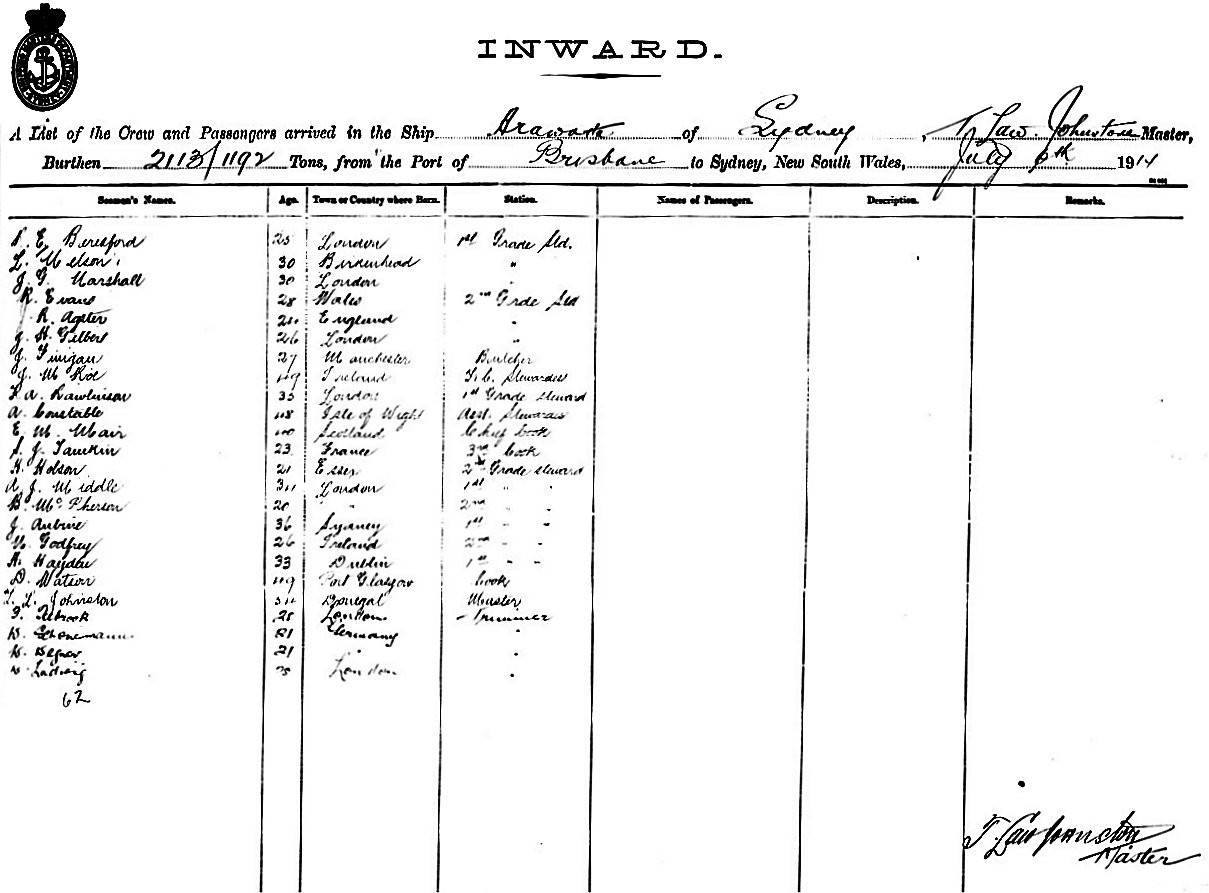 INWARD.
A List of the Crew and Passengers arrived in the Ship Arawatta of Sydney, T. Law Johnstone Master,
Burthen 2113/1192 Tons, from the Port of Brisbane to Sydney, New South Wales, July 6th 1914
Seamen's Names. Age. Town or Country where Born. Station. Names of Passengers. Description. Remarks.
E. Beresford 25 London 1st Grade Std.
L. Melson 30 Birkenhead "
J. G. Marshall 30 London "
R. Evans 28 Wales 2nd Grde Std
J. R. Agster England "
J. H. Gilbert 26 London "
J. Finigan 27 Manchester Butcher
J. M. Roe 49 Ireland Stewardess
A. Rawlinson 35 London 1st Grade steward
A. Constable 48 Isle of Wight Asst. Stewardess
E. M. Mair 40 Scotland Chief Cook
S. J. Tamkin 23 France 3rd Cook
H. Holson 21 Essex 2nd Grade steward
A. J. Middle 34 London 1st " "
B. McPherson 20 " " 2nd " "
J. Aubrie 36 Sydney 1st " "
Godfrey 26 Ireland 2nd " "
H. Hayden 33 Dublin 1st " "
D. Watson 49 Port Glasgow Cook
T. L. Johnston 54 Donegal Master
28 London Trimmer
W. Schonemann 21 Germany "
W. Wegner 21 " "
W. Ludwig London "
62
T. Law Johnston
Master